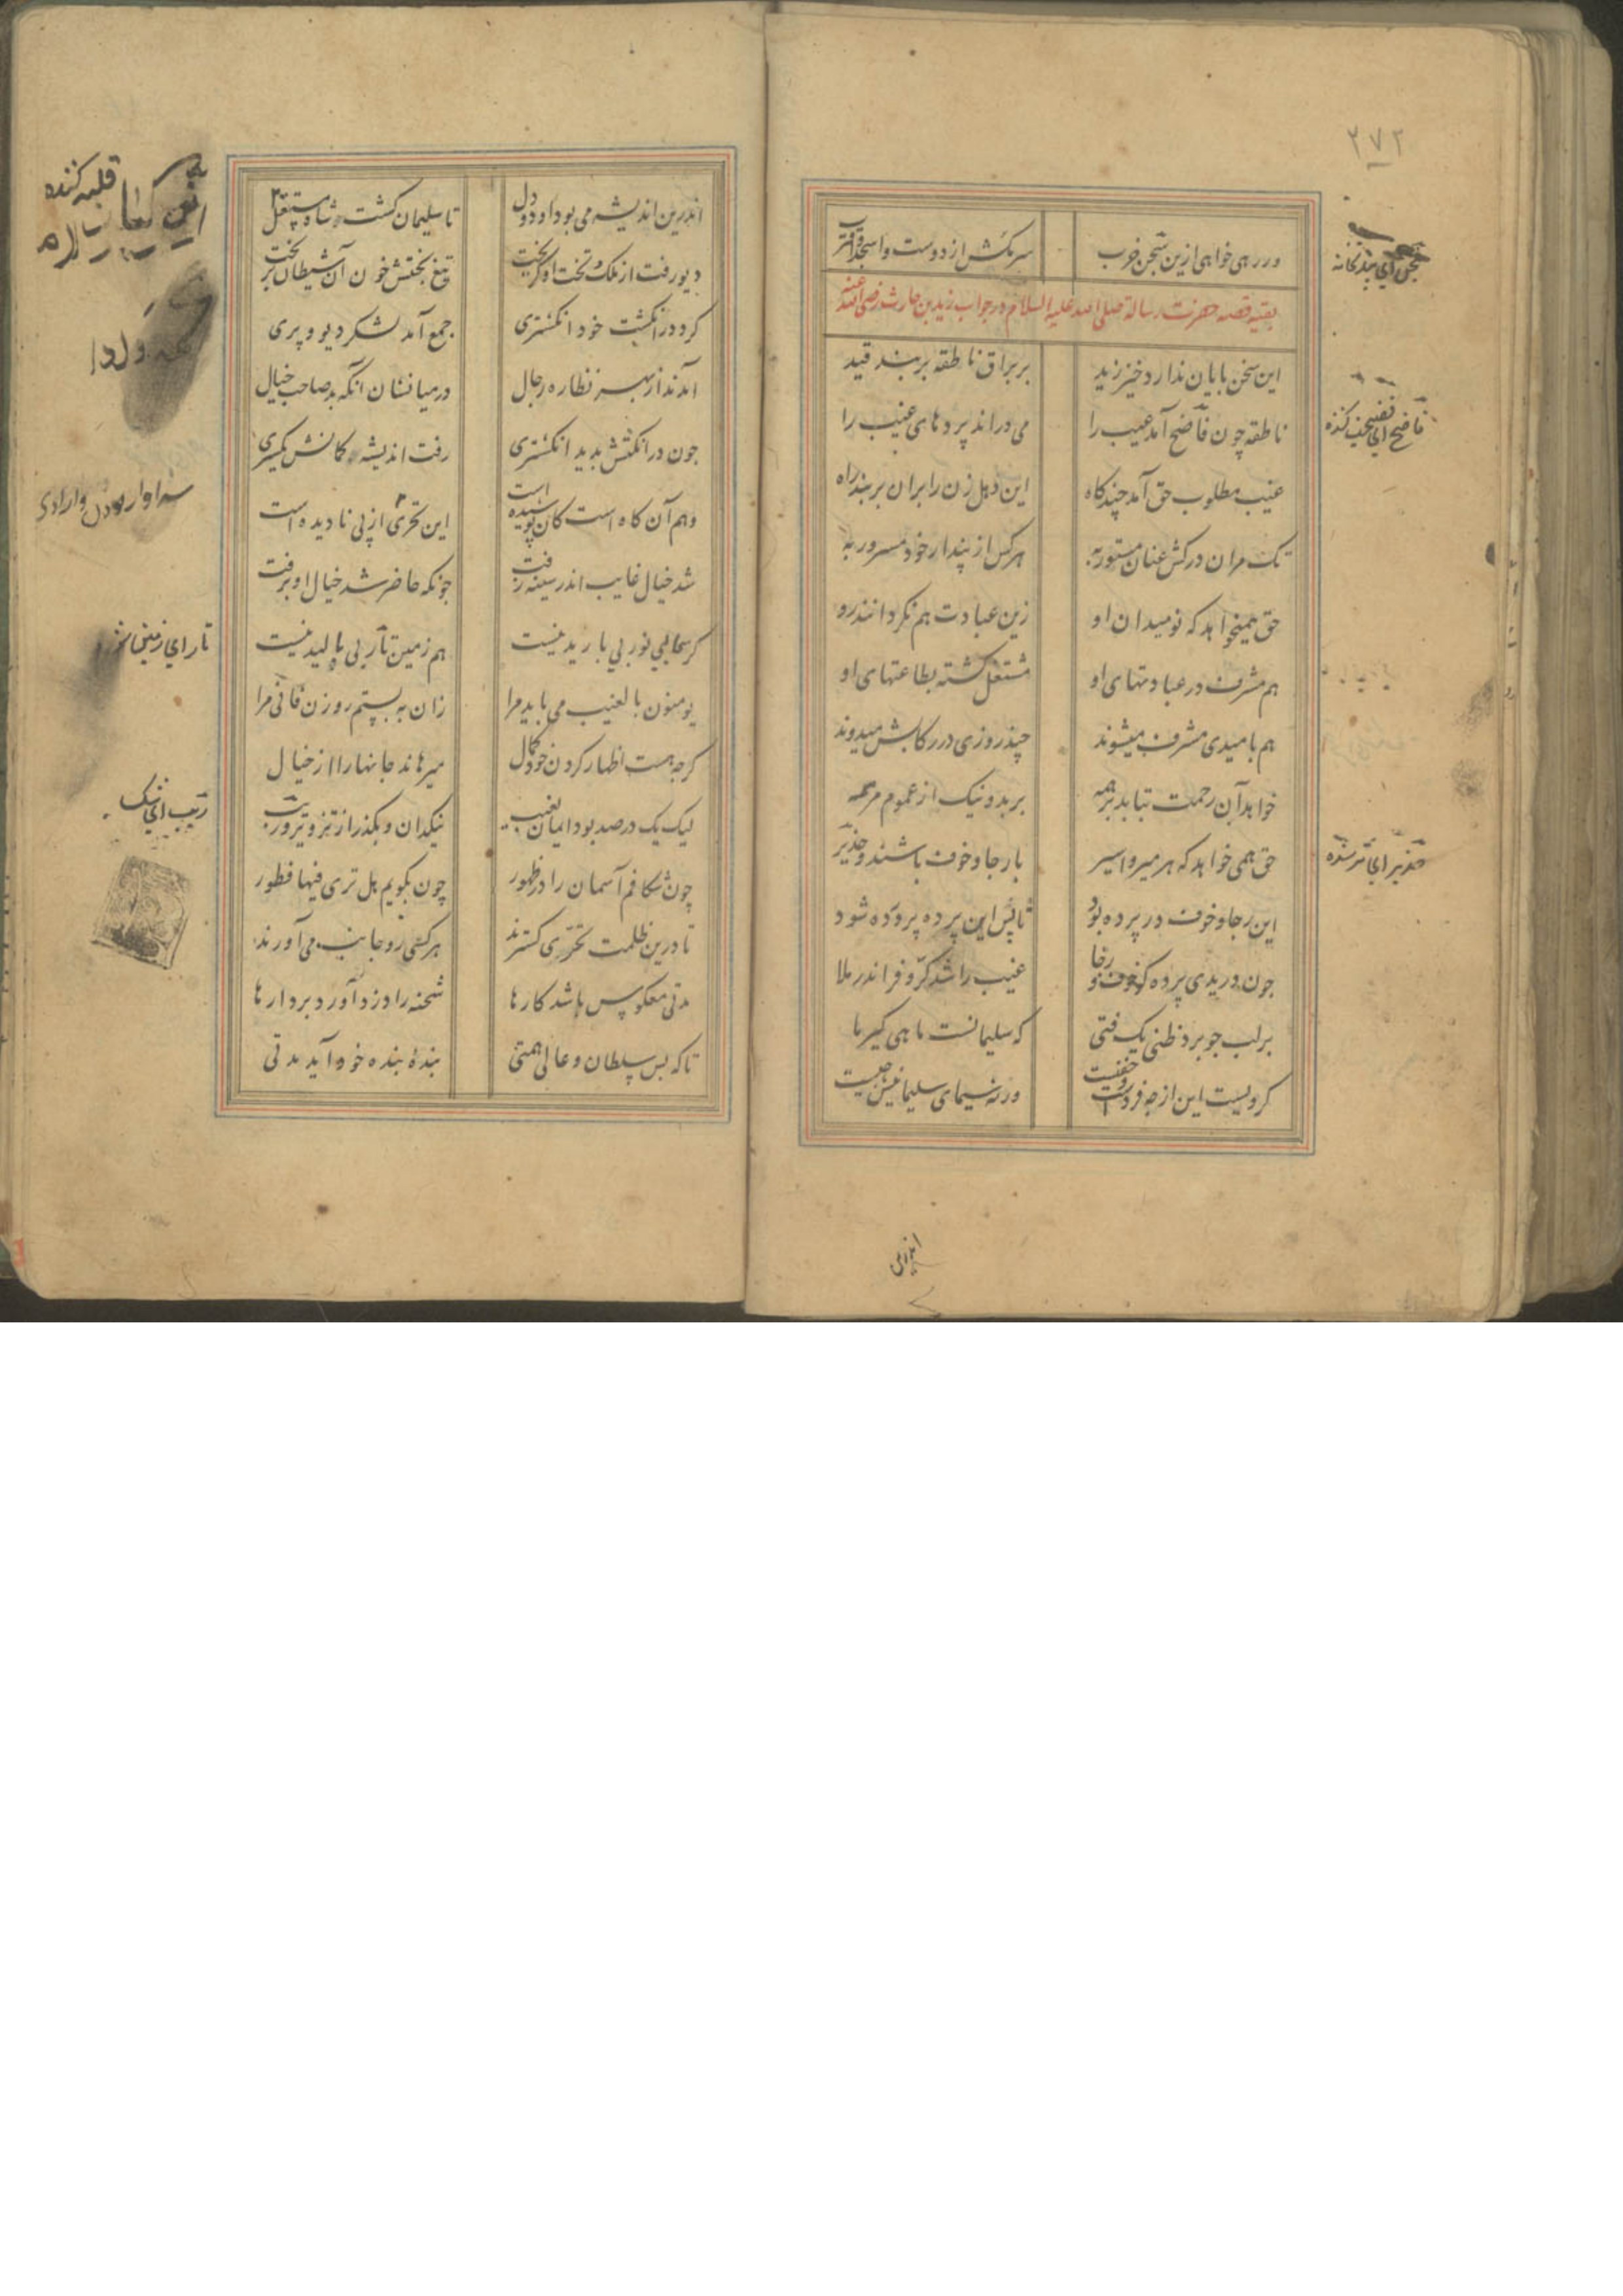 ۲۷۲
ور رهی خواهی ازین سجن خرب سر مکش از دوست واسجد واقترب
بقیه قصه حضرت رسالة صلی الله علیه السلام در جواب زید بن حارث رضی الله عنه
این سخن پایان ندارد خیز زید بر براق ناطقه بر بند قید
ناطقه چون فاضح آمد عیب را می دراند پردهای غیب را
غیب مطلوب حق آمد چند کاه این دهل زن را بران بر بند راه
تک مران درکش عنان مستور به هر کس از پندار خود مسرور به
حق همیخواهد که نومیدان او زین عبادت هم نکردانند رو
هم مشرف در عبادتهای او مشتغل کشته بطاعتهای او
هم بامیدی مشرف میشوند چند روزی در رکابش میدوند
خواهد آن رحمت بتابد بر همه بر بد و نیک از عموم مرحمه
حق همی خواهد که هر میر و اسیر با رجا و خوف باشند و حذیر
این رجا و خوف در پرده بود تا پس این پرده پرورده شود
چون دریدی پرده کو خوف و رجا غیب را شد کرّ و فر اندر ملا
بر لب جو برد ظنی یک فتی که سلیمانست ماهی کیر ما
کر ویست این از چه فردست و خفیست ورنه سیمای سلیمانیش چیست
سجن ای بندیخانه
فاضح ای فضیحت کننده
حذیر ای ترسنده
اندرین
اندرین اندیشه می بود او دو دل تا سلیمان کشت شاه و مستقل
دیو رفت از ملک و تخت او کریخت تیغ بختش خون آن شیطان بریخت
کرد در انکشت خود انکشتری جمع آمد لشکر دیو و پری
آمدند از بهر نظاره رجال در میانشان آنکه بد صاحب خیال
چون در انکشتش بدید انکشتری رفت اندیشه و کمانش یکسری
وهم آن کاه است کان پوشیده است این تحری از پی نادیده است
شد خیال غایب اندر سینه زفت چونکه حاضر شد خیال او برفت
کر سمای نور بی باریده نیست هم زمین تار بی بالیده نیست
یومنون بالغیب می باید مرا زان ببستم روزن فانی مرا
کرچه هست اظهار کردن خود کمال میرهاند جانها را از خیال
لیک یک در صد بود ایمان بغیب نیک دان و بکذر از تزویر و ریب
چون شکافم آسمان را در ظهور چون بکویم هل تری فیها فطور
تا درین ظلمت تحرّی کسترند هر کسی رو جانبی می آورند
مدتی معکوس باشد کارها شحنه را دزد آورد بر دارها
تا که بس سلطان و عالی همتی بندهٔ بنده خود آید مدتی
ریب ای شک